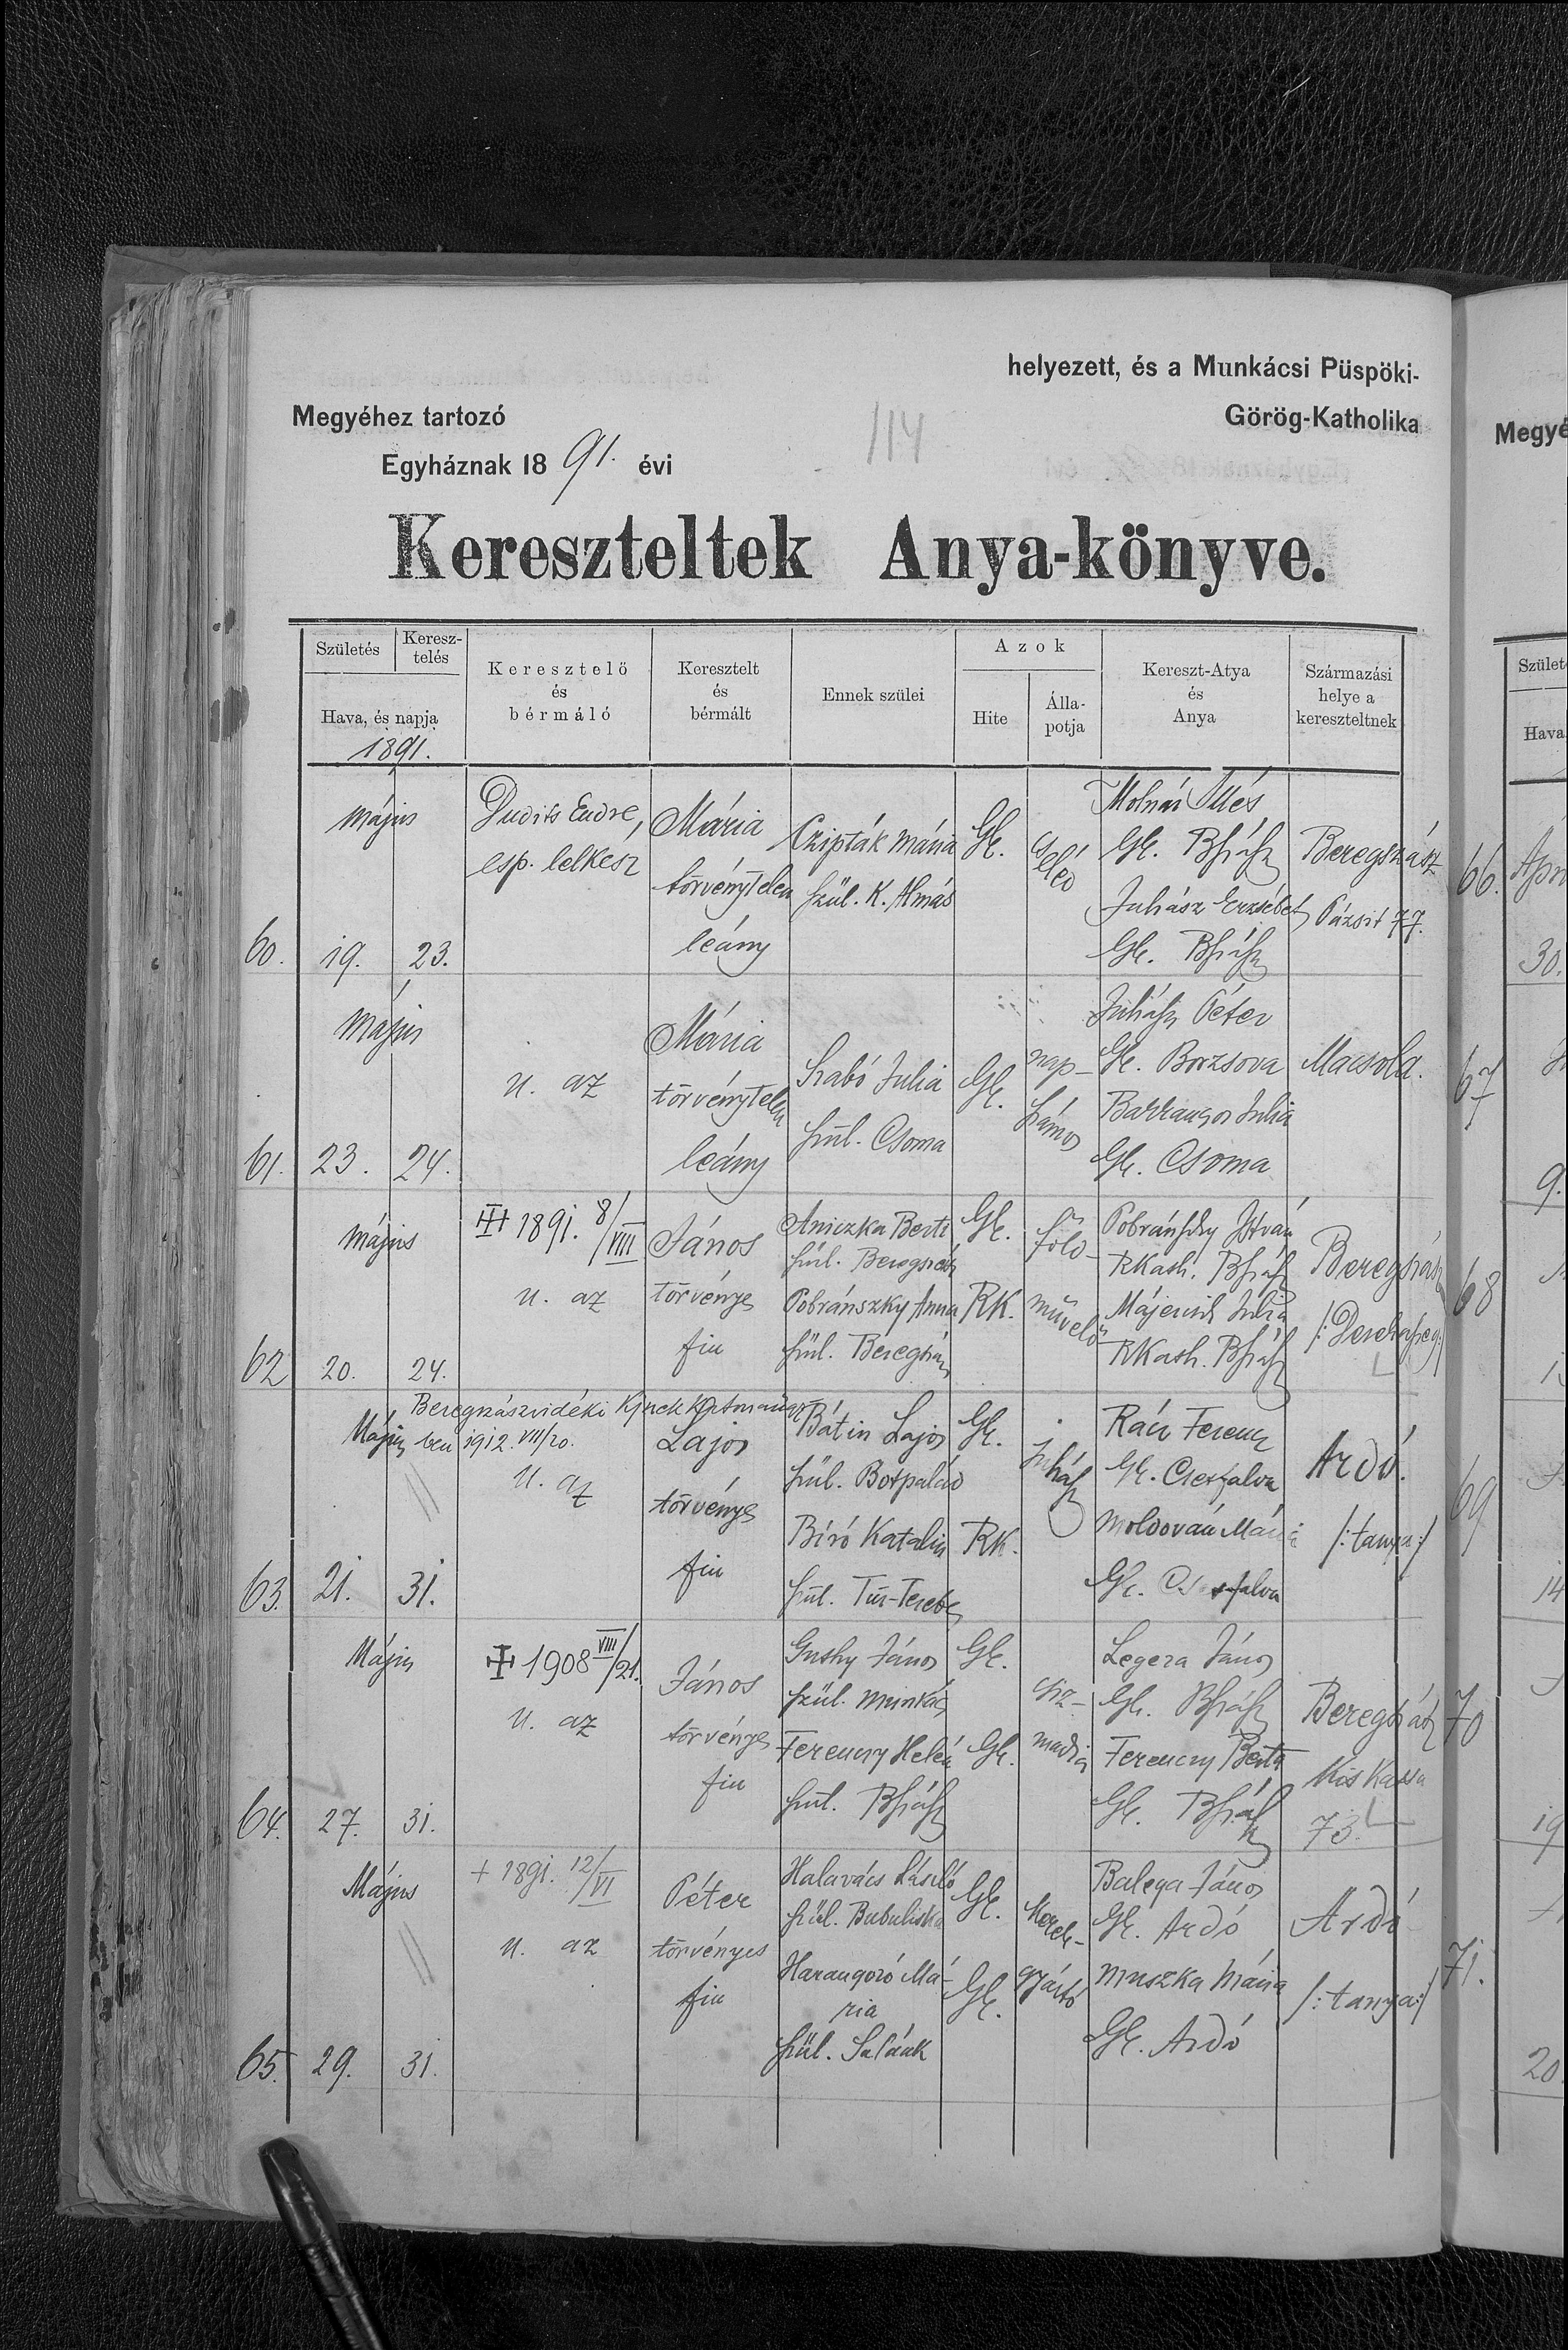 helyezett, és a Munkácsi Püspöki-
Megyéhez tartozó
Görög-Katholika
Egyháznak 1891. évi
114
Kereszteltek Anya-könyve.
Születés
Keresz-
telés
Hava, és napja
1891.
Keresztelő
és
bérmáló
Keresztelt
és
bérmált
Ennek szülei
Azok
Hite
Álla-
potja
Kereszt-Atya
és
Anya
Származási
helye a
kereszteltnek
60.
Május
19. 23.
Dudits Endre,
esp. lelkész
Mária
törvénytelen
leány
Czipták Mária
szül. K. Almás
Gk.
cseléd
Molnár Illés
Gk. Bszász
Juhász Erzsébet
Gk. Bszász
Beregszász
Pázsit 77.
61.
Május
23. 24.
u. az
Mária
törvénytelen
leány
Szabó Julia
szül. Csoma
Gk.
nap-
számos
Juhász Péter
Gk. Borzsova
Julia
Gk. Csoma
Macsola.
62
Május
20. 24.
1891. 8/VIII
u. az
János
törvényes
fiu
Aniczka Berti
szül. Beregszász
Pobránszky Anna
szül. Beregszász
Gk.
RK.
föld-
művelő
Pobránszky István
RKath. Bszász
Julia
RKath. Bszász
Beregszász
63.
Május
21. 31.
Beregszászvidéki
ben 1912. VII/20.
u. az
Lajos
törvényes
fiu
Bátin Lajos
szül. Botpalád
Bíró Katalin
szül. Túr-Terebes
Gk.
RK.
juhász
Rácz Ferencz
Gk. Cserfalva
Moldován Mária
Gk.
Ardó.
/:tanya:/
64.
Május
27. 31.
1908 VIII/21.
u. az
János
törvényes
fiu
János
szül. Munkács
Ferenczy Helén
szül. Bszász
Gk.
Gk.
csiz-
madia
Legeza János
Gk. Bszász
Ferenczy Berta
Gk. Bszász
Beregszász
Kis Kassa
73.
65.
Május
29. 31.
+ 1891. 12/VI
u. az
Péter
törvényes
fiu
Halavács László
szül. Bubuliska
Harangozó Má-
ria
szül. Salánk
Gk.
Gk.
Kerék-
gyártó
Balega János
Gk. Ardó
Muszka Mária
Gk. Ardó
Ardó
/:tanya:/
Megyé
Szület
Hava
66.
30.
67
9.
68
69
14
70
19
71.
20.